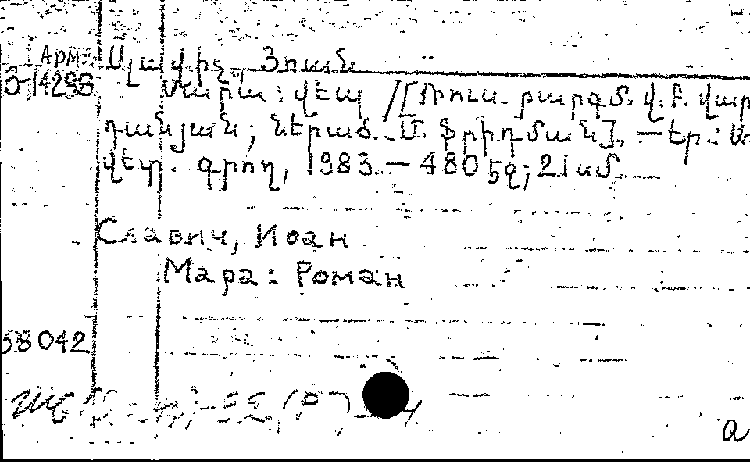 Арм.
3-14296
Սլավիչ, Յոան
Մարա: վեպ /[Ռուս. թարգմ. Վ. Բ. Վար
դանյան; ներած. Մ. Ֆրիդման]. — Եր.: Սո
վետ. գրող, 1983. — 480 էջ; 21 սմ.
Славич, Иоан
Мара: Роман
58042
а